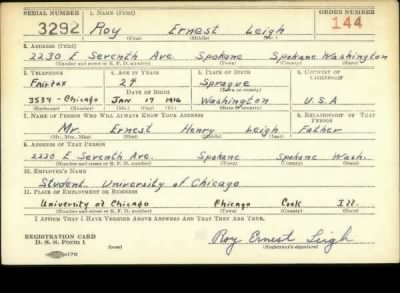 SERIAL NUMBER 1. NAME (Print) ORDER NUMBER
3292 Roy Ernest Leigh 144
(First) (Middle) (Last)
2. ADDRESS (Print)
2230 E Seventh Ave. Spokane Spokane Washington
(Number and street or R. F. D. number) (Town) (County) (State)
3. TELEPHONE 4. AGE IN YEARS 5. PLACE OF BIRTH 6. COUNTRY OF CITIZENSHIP
Fairfax 24 Sprague
DATE OF BIRTH (Town or county)
3534 - Chicago Jan 17 1916 Washington U.S.A
(Exchange) (Number) (Mo.) (Day) (Yr.) (State or country)
7. NAME OF PERSON WHO WILL ALWAYS KNOW YOUR ADDRESS 8. RELATIONSHIP OF THAT PERSON
Mr. Ernest Henry Leigh Father
(Mr., Mrs., Miss) (First) (Middle) (Last)
9. ADDRESS OF THAT PERSON
2230 E Seventh Ave. Spokane Spokane Wash.
(Number and street or R. F. D. number) (Town) (County) (State)
10. EMPLOYER'S NAME
Student University of Chicago
11. PLACE OF EMPLOYMENT OR BUSINESS
University of Chicago Chicago Cook Ill.
(Number and street or R. F. D. number) (Town) (County) (State)
I AFFIRM THAT I HAVE VERIFIED ABOVE ANSWERS AND THAT THEY ARE TRUE.
REGISTRATION CARD
D. S. S. Form 1 (over) Roy Ernest Leigh
(Registrant's signature)